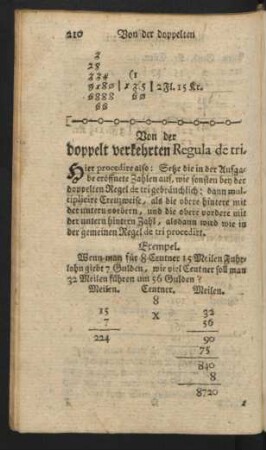 210 Von der doppelten
2
28
234 (1
9180 | 135 | 2 Fl. 15 Kr.
6888 60
66
Von der
doppelt verkehrten Regula de tri.
Hier procedire also: Setze die in der Aufga-
be eröffnete Zahlen auf, wie sonsten bey der
doppelten Regel de tri gebräuchlich: dann mul-
tiplicire Creuzweise, als die obere hintere mit
der untern vordern, und die obere vordere mit
der untern hintern Zahl, alsdann wird wie in
der gemeinen Regel de tri procedirt.
Exempel.
Wenn man für 8 Centner 15 Meilen Fuhr-
lohn giebt 7 Gulden, wie viel Centner soll man
32 Meilen führen um 56 Gulden?
Meilen. Centner. Meilen.
8
15 X 32
7 56
224 90
75
840
8
8720